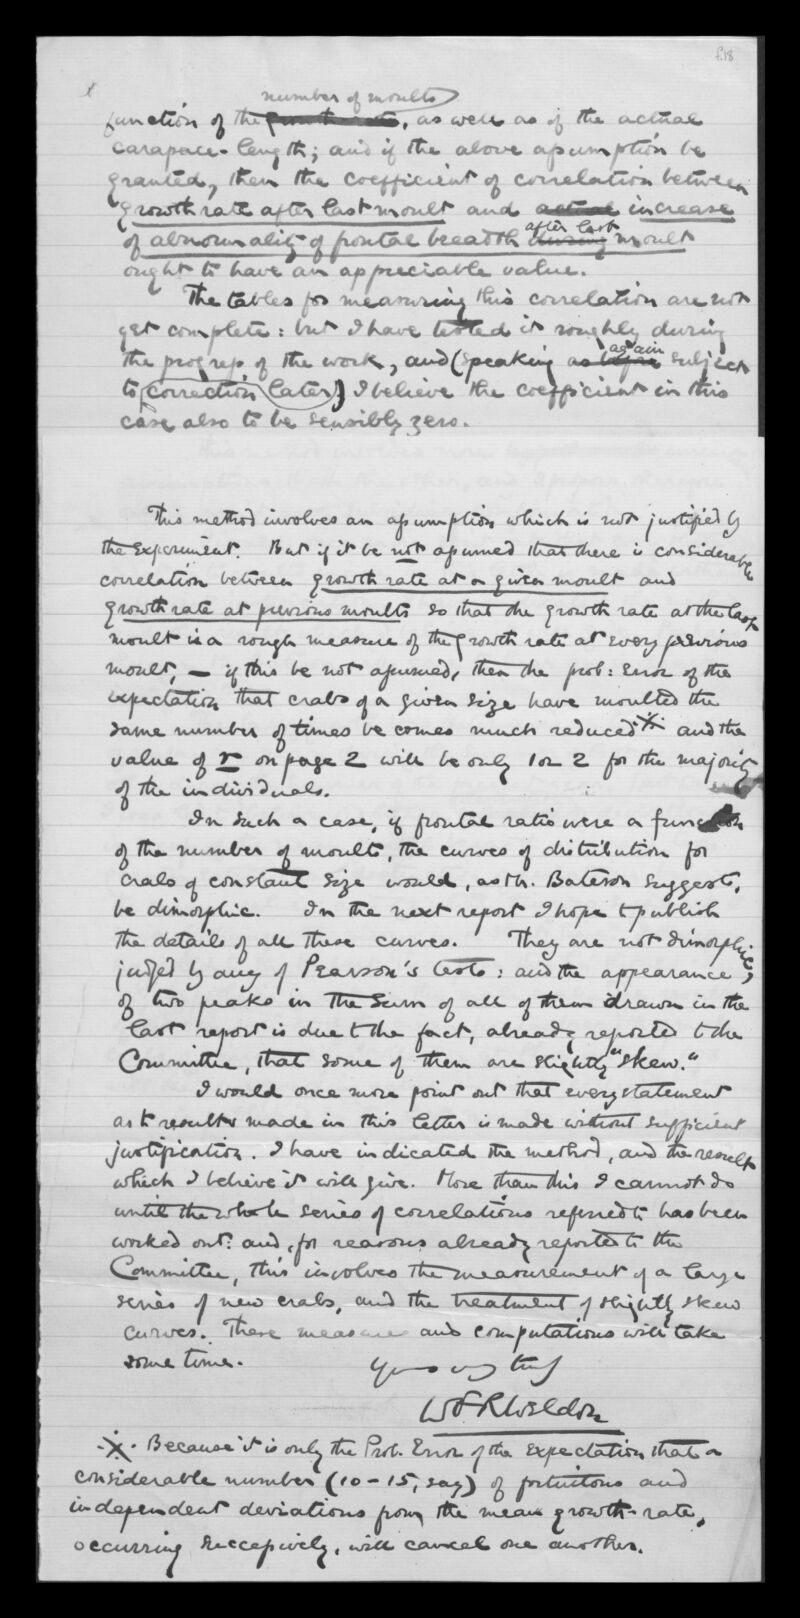 f.18
x
number of moults
function of the growth rate, as well as of the actual
carapace-length; and if the above assumption be
granted, then the coefficient of correlation between
growth rate after last moult and actual increase
of abnormality of frontal breadth during after last moult
ought to have an appreciable value.
The tables for measuring this correlation are not
yet complete: but I have tested it roughly during
the progress of the work, and (speaking as before again subject
to correction later) I believe the coefficient in this
case also to be sensibly zero.
This method involves an assumption which is not justified by
the experiment. But if it be not assumed that there is considerable
correlation between growth rate at a given moult and
growth rate at previous moults so that the growth rate at the last
moult is a rough measure of the growth rate at every previous
moult, — if this be not assumed, then the prob: error of the
expectation that crabs of a given size have moulted the
same number of times becomes much reduced ※ and the
value of r on page 2 will be only 1 or 2 for the majority
of the individuals.
In such a case, if frontal ratio were a function
of the number of moults, the curves of distribution for
crabs of constant size would, as Mr. Bateson suggests,
be dimorphic. In the next report I hope to publish
the details of all these curves. They are not dimorphic,
judged by any of Pearson's tests: and the appearance
of two peaks in the sum of all of them drawn in the
last report is due to the fact, already reported to the
Committee, that some of them are slightly "skew."
I would once more point out that every statement
as to results made in this letter is made without sufficient
justification. I have indicated the method, and the results
which I believe it will give. More than this I cannot do
until the whole series of correlations referred to has been
worked out: and, for reasons already reported to the
Committee, this involves the measurement of a large
series of new crabs, and the treatment of slightly skew
curves. These measures and computations will take
some time.
Yours very truly
W F R Weldon
※. Because it is only the Prob. Error of the Expectation that a
considerable number (10-15, say) of fortuitous and
independent deviations from the mean growth-rate,
occurring successively, will cancel one another.